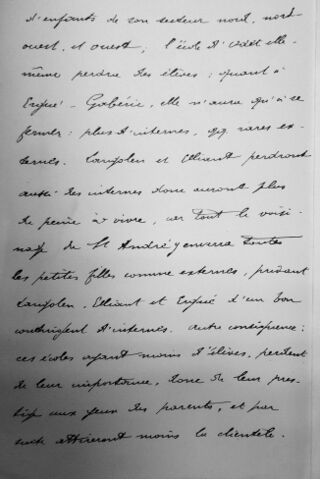 d'enfants de son secteur nord, nord
ouest, et ouest ; l'école d'Odet elle-
même perdra des élèves ; quant à
Ergué-Gabéric, elle n'aura qu'à se
fermer : plus d'internes, qq rares ex-
ternes. Langolen et Elliant perdront
aussi des internes donc auront plus
de peine à vivre, car tout le voisi-
nage de St André y enverra toutes
les petites filles comme externes, privant
Langolen, Elliant et Ergué d'un bon
contingent d'internes. Autre conséquence :
ces écoles ayant moins d'élèves, perdent
de leur importance, donc de leur pres-
tige aux yeux des parents, et par
suite attireront moins la clientèle.